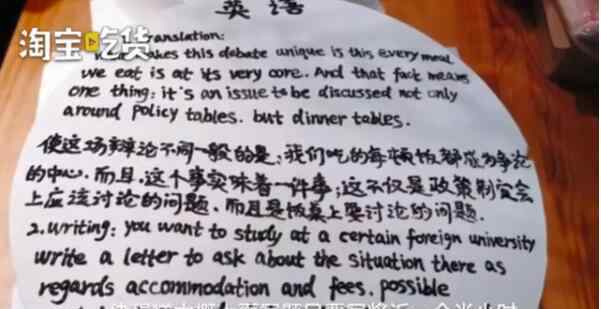 英语
淘宝吃货
anslation:
akes this debate unique is this every meal
we eat is at its very core. And that fact means
one thing: it's an issue to be discussed not only
around policy tables. but dinner tables.
使这场辩论不同一般的是,我们吃的每顿饭都成为争论
的中心.而且,这个事实味着一件事:这不仅是政策制定会
上应该讨论的问题.而且是饭桌上要讨论的问题.
2.writing: you want to study at a certain foreign university
write a letter to ask about the situation there as
regards accommodation and fees. possible